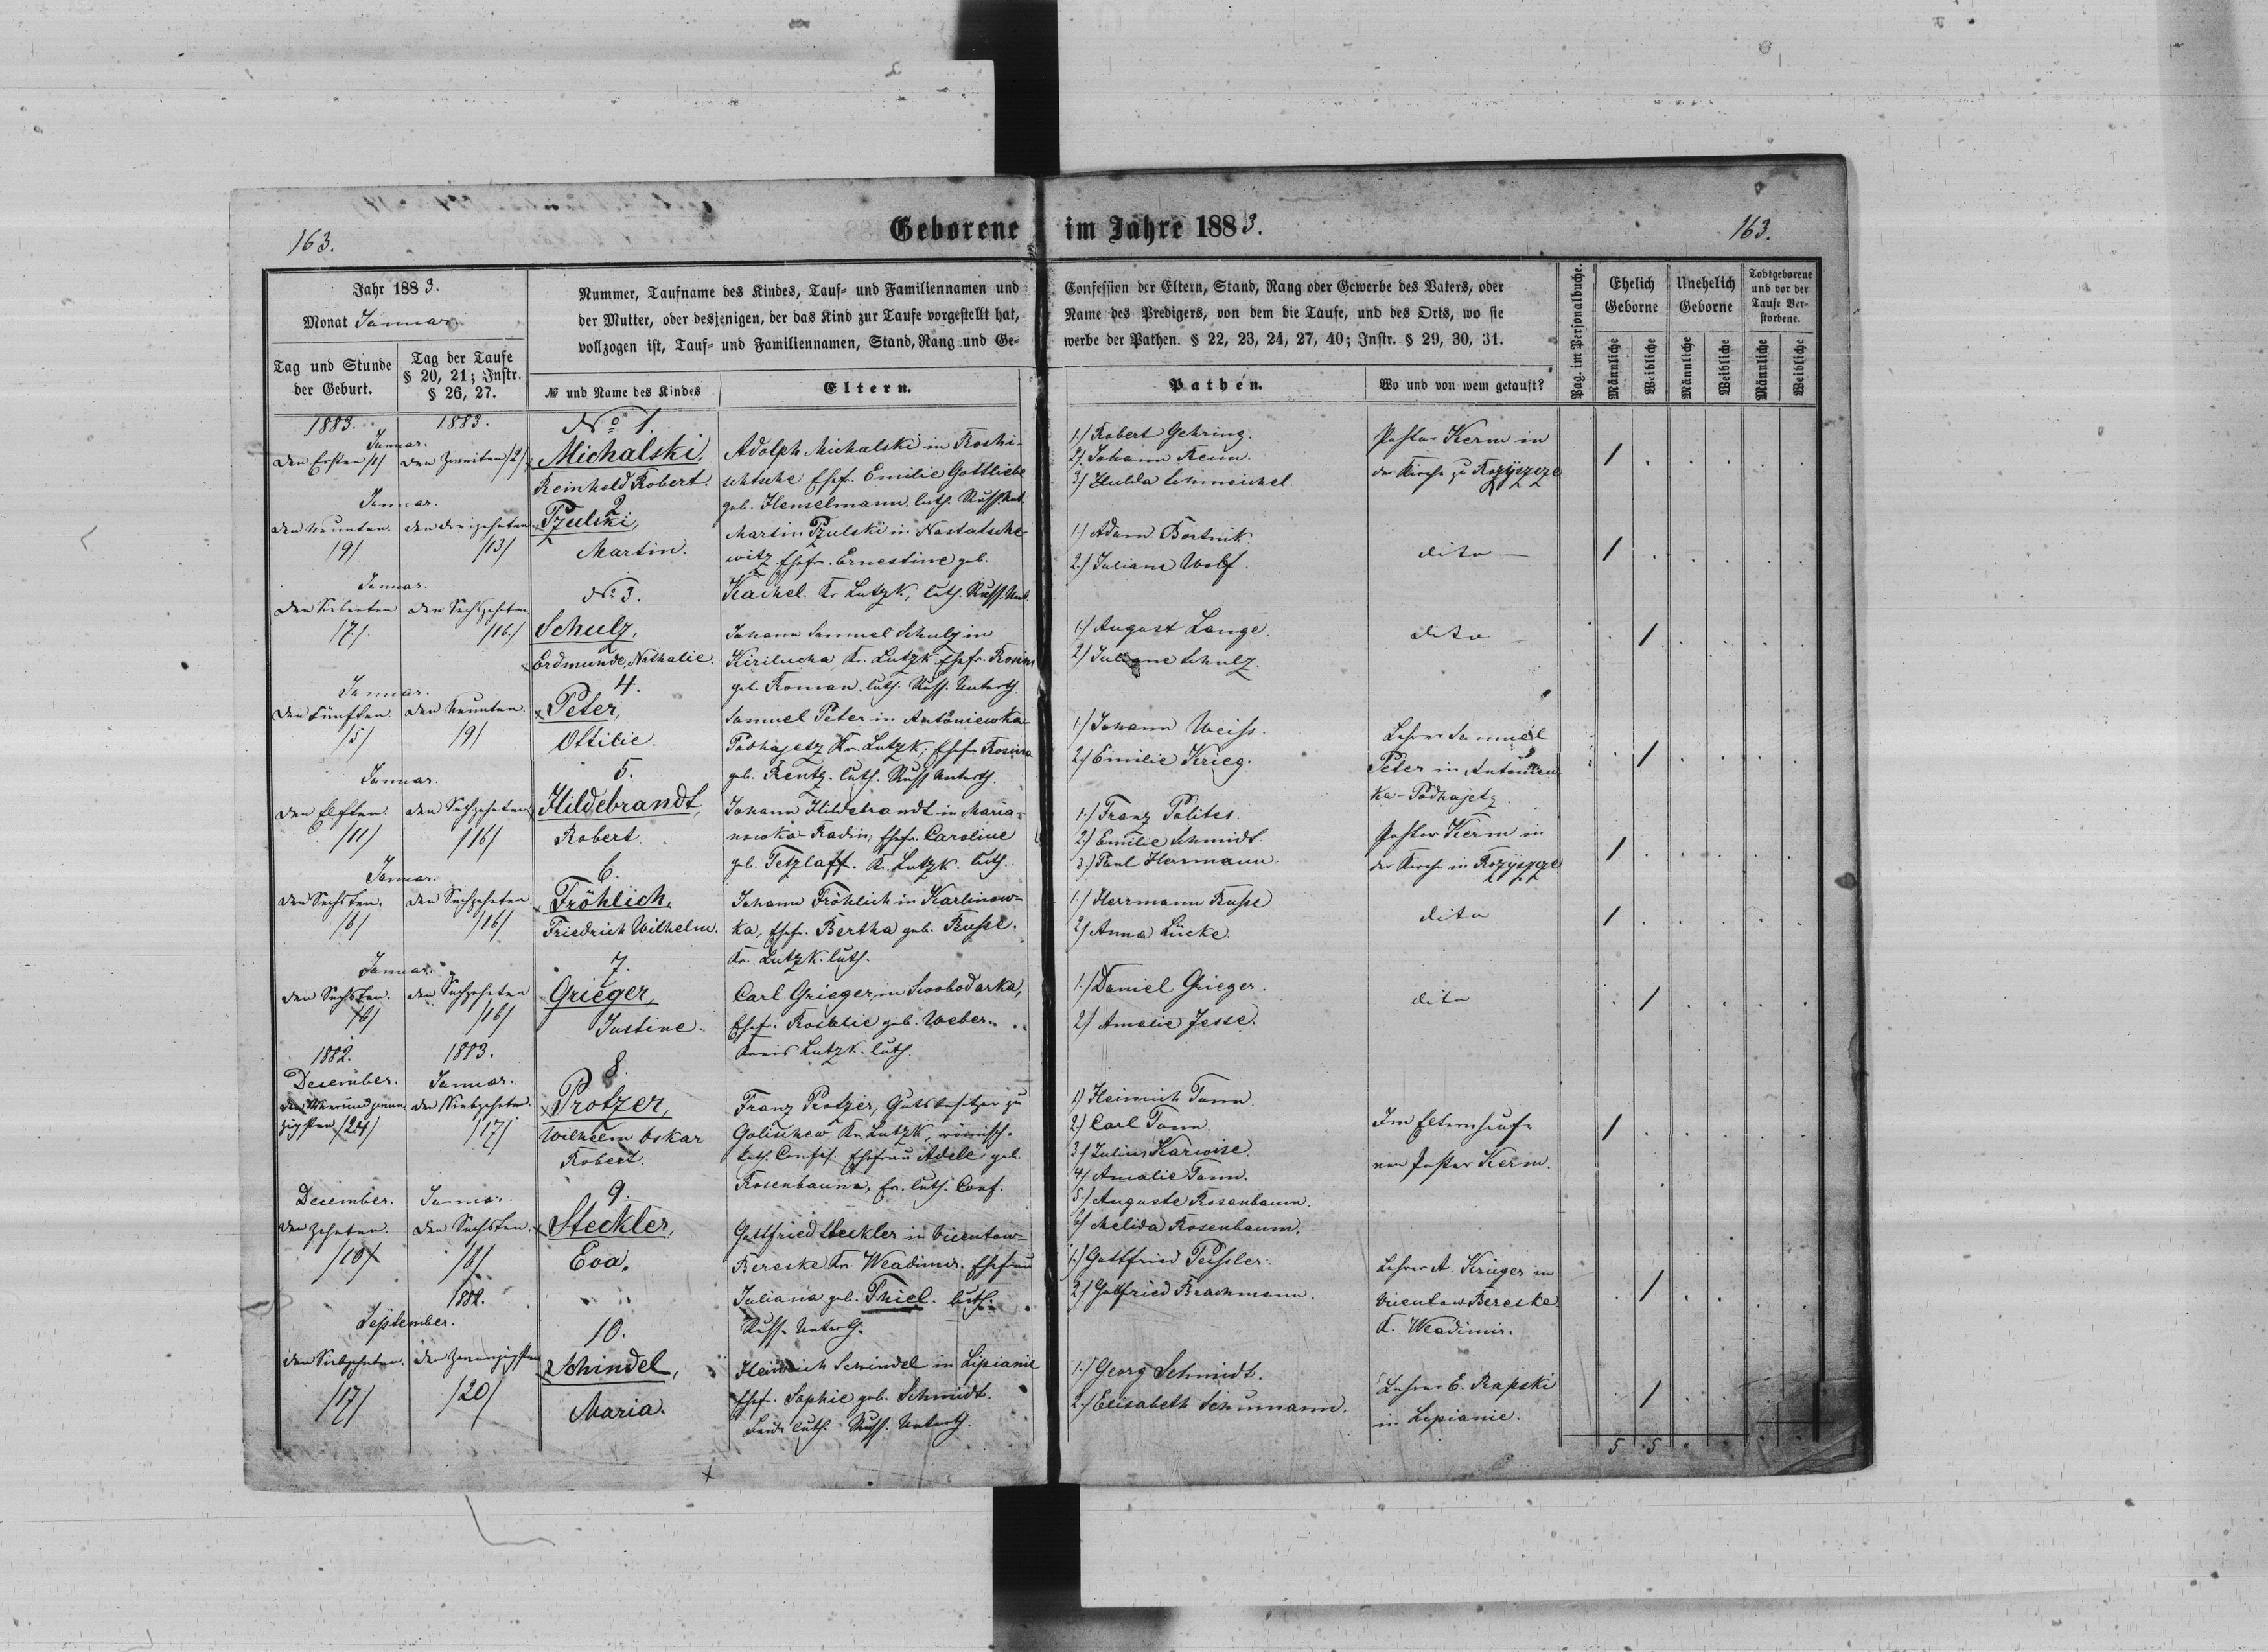 163.
Geborene im Jahre 1883.
163.
Jahr 1883.
Monat Januar
Tag und Stunde der Geburt.
Tag der Taufe § 20, 21; Instr. § 26, 27.
Nummer, Taufname des Kindes, Tauf- und Familiennamen und
der Mutter, oder desjenigen, der das Kind zur Taufe vorgestellt hat,
vollzogen ist, Tauf- und Familiennamen, Stand, Rang und Ge-
№ und Name des Kindes
Eltern.
Confession der Eltern, Stand, Rang oder Gewerbe des Vaters, oder
Name des Predigers, von dem die Taufe, und des Orts, wo sie
werbe der Pathen. § 22, 23, 24, 27, 40; Instr. § 29, 30, 31.
Pathen.
Wo und von wem getauft?
Pag. im Personalbuche.
Ehelich Geborne
Unehelich Geborne
Todtgeborene und vor der Taufe Verstorbene.
Männliche
Weibliche
Männliche
Weibliche
Männliche
Weibliche
1883.
1883.
Januar.
den Ersten /1/
den Zweiten /2/
No 1.
Michalski,
Reinhold Robert.
Adolph Michalski in Roshi-
schtsche Ehef. Emilie Gottliebe
geb. Henselmann. luth. Russ. Unt.
1.) Robert Gehring.
2.) Johann Renn.
3.) Hulda Schmeichel.
Pastor Kerm in
der Kirche zu Rozyszcze
1
Januar.
den Neunten.
/9/
den dreizehnten
/13/
2
Pzulski,
Martin.
Martin Pzulski in Nastatsche-
witz Ehefr. Ernestine geb.
Kachel. Kr. Lutzk, luth. Russ. Unt.
1.) Adam Bortnik
2.) Juliane Wolf.
dito
1
Januar.
den Siebenten
/7/
den Sechszehnten
/16/
No 3.
Schulz,
Erdmunde, Nathalie.
Johann Samuel Schulz in
Kirilucha Kr. Lutzk Ehefr. Rosine
geb Roman. luth. Russ. Unterth.
1.) August Lange.
2.) Juliane Schulz.
dito
1
Januar.
den Fünften.
/5/
den Neunten.
/9/
4.
Peter,
Ottilie.
Samuel Peter in Antoniewka-
Podhajetz Kr. Lutzk, Ehefr. Rosina
geb. Rentz. luth. Russ Unterth.
1.) Johann Weiss.
2.) Emilie Krieg.
Lehrer Samuel
Peter in Antoniew
ka-Podhajetz.
1
Januar.
den Elften.
/11/
den Sechzehnten
/16/
5.
Hildebrandt,
Robert.
Johann Hildebrandt in Maria-
nowka-Radin, Ehefr. Caroline
geb. Tetzlaff. Kr. Lutzk. luth.
1.) Franz Polites.
2.) Emilie Schmidt
3.) Paul Herrmann.
Pastor Kerm in
der Kirche in Rozyszcze
1
Januar.
den Sechsten.
/6/
den Sechzehnten
/16/
6.
Fröhlich,
Friedrich Wilhelm.
Johann Fröhlich in Karlinow-
ka, Ehef. Bertha geb. Russe.
Kr. Lutzk. luth.
1.) Herrmann Russe
2.) Anna Lücke.
dito
1
Januar.
den Sechsten.
/6/
den Sechzehnten
/16/
7.
Grieger,
Justine.
Carl Grieger, in Swobodarka,
Ehef. Rosalie geb. Weber.
Kreis Lutzk. luth.
1.) Daniel Grieger.
2.) Amalie Jesse.
dito
1
1882.
1883.
December.
Januar.
den Vierundzwan
zigsten /24/
den Siebzehnten.
/17/
8.
Protzer,
Wilhelm Oskar
Robert.
Franz Protzer, Gutsbesitzer zu
Golischew Kr. Lutzk, römisch-
kath. Confes. Ehefrau Adele geb.
Rosenbaum, ev. luth. Conf.
1.) Heinrich Tonn.
2.) Carl Tonn.
3.) Julius Karwise.
4.) Amalie Tonn.
5.) Auguste Rosenbaum.
6.) Melida Rosenbaum.
Im Elternhause
von Pastor Kerm.
1
December.
Januar.
den Zehnten.
/10/
den Sechsten.
/6/
9.
Steckler,
Eva.
Gottfried Steckler in Vierntow-
Bereske Kr. Wladimir. Ehefrau
Juliana geb. Thiel. luth.
Russ. Unterth.
1.) Gottfried Teissler.
2.) Gottfried Brachmann.
Lehrer A. Krüger in
Bereske
K. Wladimir.
1
1882.
September.
den Siebzehnten.
/17/
den Zwanzigsten
/20/
10.
Schindel,
Maria.
Heinrich Schindel in Lipianie
Ehef. Sophie geb. Schmidt.
Beide luth. Russ. Unterth.
1.) Georg Schmidt.
2.) Elisabeth Schumann.
Lehrer E. Rapski
in Lipianie.
1
5 5